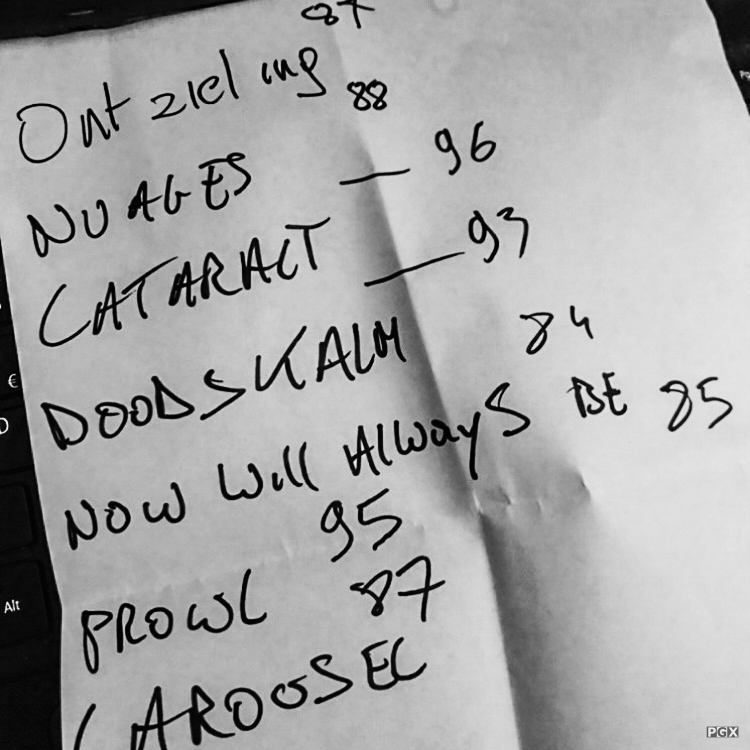 87
Ontzieling 88
NUAGES — 96
CATARACT — 93
DOODSKALM 84
NOW WILL ALWAYS BE 85
95
PROWL 87
CAROUSEL
€
Alt
PGX